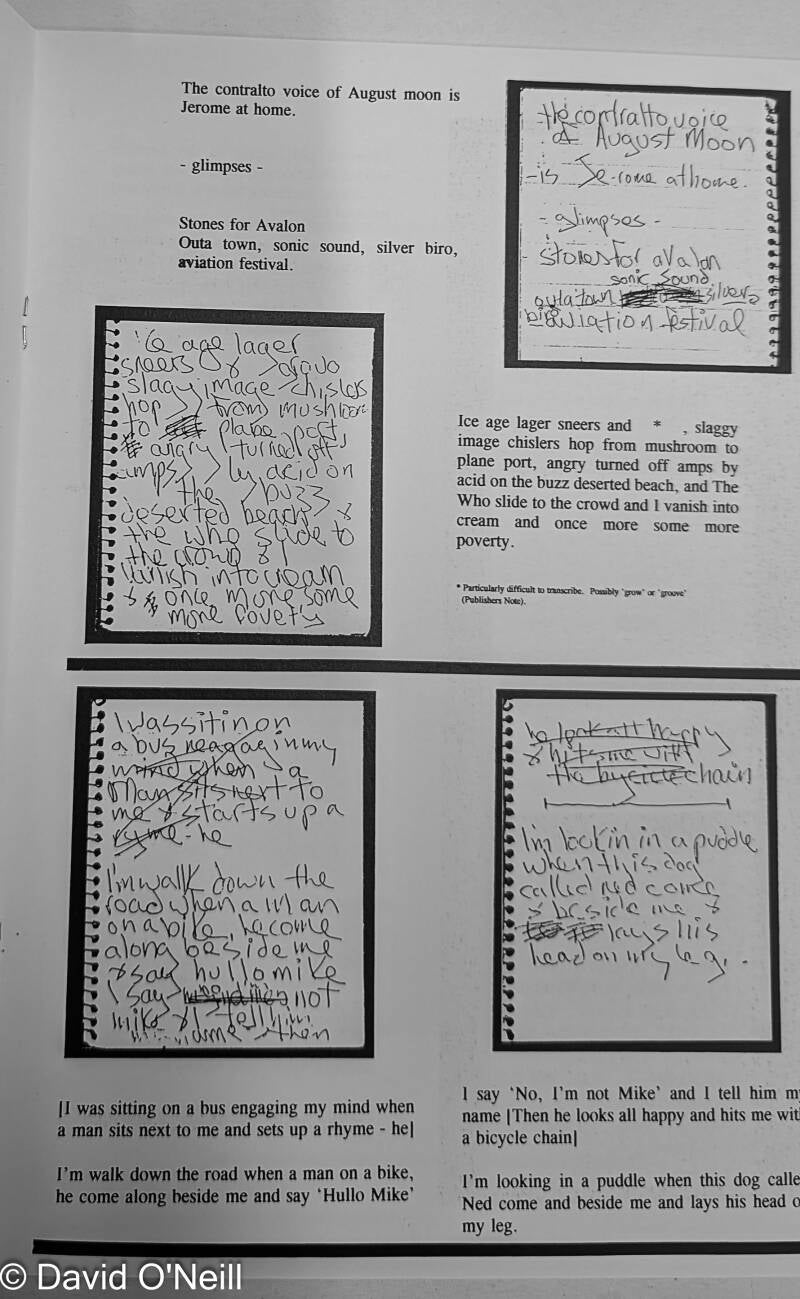 The contralto voice of August moon is
Jerome at home.
- glimpses -
Stones for Avalon
Outa town, sonic sound, silver biro,
aviation festival.
the contralto voice
of August Moon
-is Je-rome at home.
- glimpses -
- stones for avalon
sonic sound
outa town silver
biro aviation festival
age lager
sneers &
slaggy image chislers
hop from mushroom
to plane port,
angry turned off
amps by acid on
the buzz
deserted beach &
the who slide to
the crowd & I
Vanish into cream
& once more some
more Poverty
Ice age lager sneers and * , slaggy
image chislers hop from mushroom to
plane port, angry turned off amps by
acid on the buzz deserted beach, and The
Who slide to the crowd and I vanish into
cream and once more some more
poverty.
* Particularly difficult to transcribe. Possibly 'grow' or 'groove'
(Publishers Note).
I was sitin on
a bus in my
mind when a
Man sits next to
me & starts up a
ryme - he
I'm walk down the
road when a man
on a bike, he come
along beside me
& say hullo mike
I say not
mike & I tell him
name then
he look all happy
& hits me with
the bycicle chain
I'm lookin in a puddle
when this dog
called ned come
& beside me &
lays his
head on my leg.
|I was sitting on a bus engaging my mind when
a man sits next to me and sets up a rhyme - he|
I'm walk down the road when a man on a bike,
he come along beside me and say 'Hullo Mike'
I say 'No, I'm not Mike' and I tell him my
name |Then he looks all happy and hits me with
a bicycle chain|
I'm looking in a puddle when this dog calle
Ned come and beside me and lays his head o
my leg.
© David O'Neill